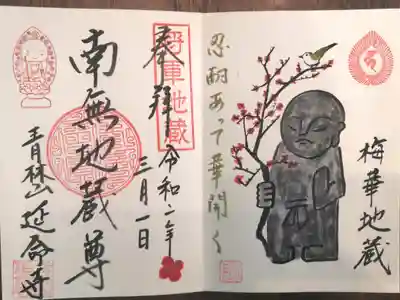 奉拝
令和二年
三月一日
南無地蔵尊
青林山延命寺
梅華地蔵
忍耐あって華開く